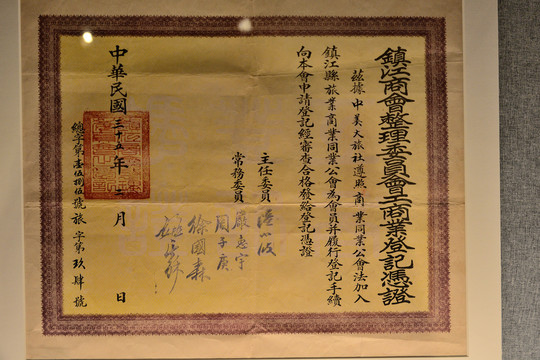 鎮江商會整理委員會工商業登記憑證
茲據 中美大旅社遵照 商 業同業公會法加入
鎮江縣旅業商業同業公會為會員并履行登記手續
向本會申請登記經審查合格發給登記憑證
主任委員
常務委員
嚴惠宇
周子庚
徐國森
中華民國三十五年二月 日
總字第壹伍捌伍號旅字第玖肆號